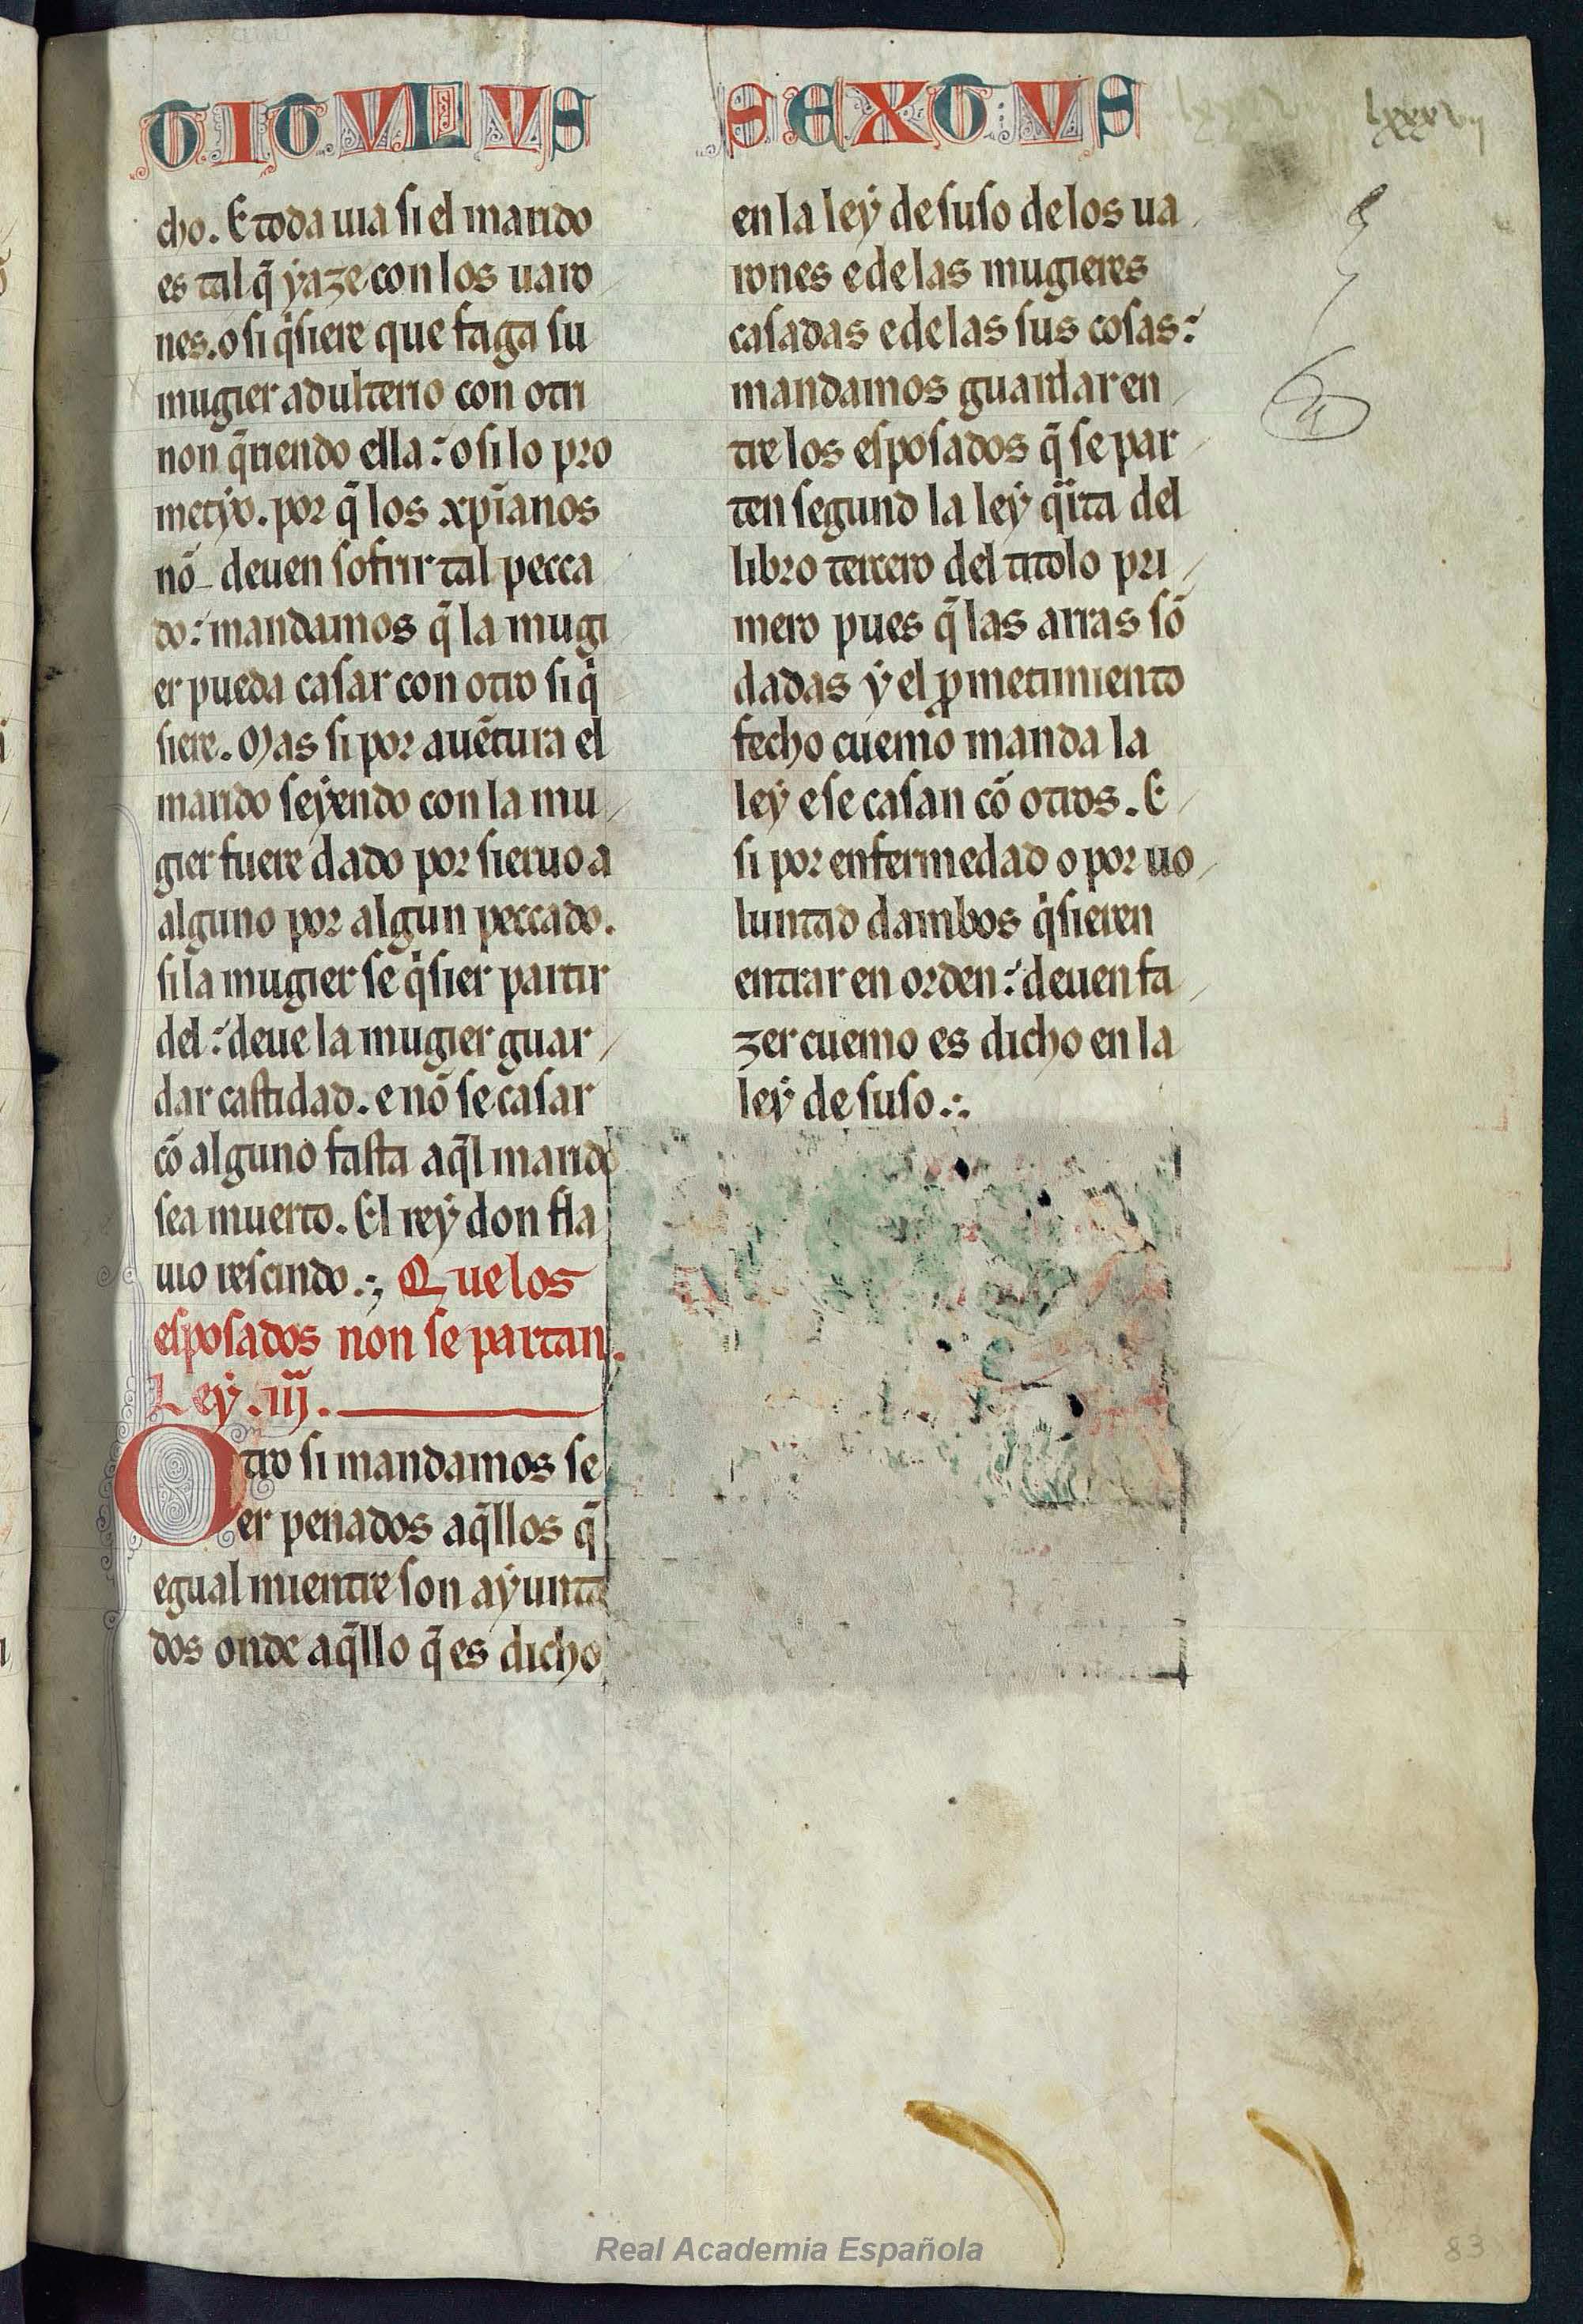 TITVLVS SEXTVS
lxxxvii
cho. E toda uia si el marido
es tal q̃ ẏaze con los uaro
nes. o si q̇siere que faga su
mugier adulterio con otri
non q̃riendo ella: o si lo pro
metẏo. por q̃ los xp̃ianos
nõ deuen sofrir tal pecca
do: mandamos q̃ la mugi
er pueda casar con otro si q̇
siere. Mas si por auẽtura el
marido seẏendo con la mu
gier fuere dado por sieruo a
alguno por algun peccado.
si la mugier se q̇sier partir
del: deue la mugier guar
dar castidad. e nõ se casar
cõ alguno fasta aq̃l marido
sea muerto. El reẏ don fla
uio rescindo.; Que los
esposados non se partan.
Leẏ .iij.
Otro si mandamos se
er penados aq̃llos q̃
egual mientre son aẏunta
dos onde aq̃llo q̃ es dicho
en la leẏ de suso de los ua
rones e de las mugieres
casadas e de las sus cosas:
mandamos guardar en
tre los esposados q̃ se par
ten segund la leẏ qͣrta del
libro tercero del titolo pri
mero pues q̃ las arras sõ
dadas ẏ el ꝓmetimiento
fecho cuemo manda la
leẏ e se casan cõ otros. E
si por enfermedad o por uo
luntad dambos q̇sieren
entrar en orden: deuen fa
zer cuemo es dicho en la
leẏ de suso.:.
Real Academia Española
83